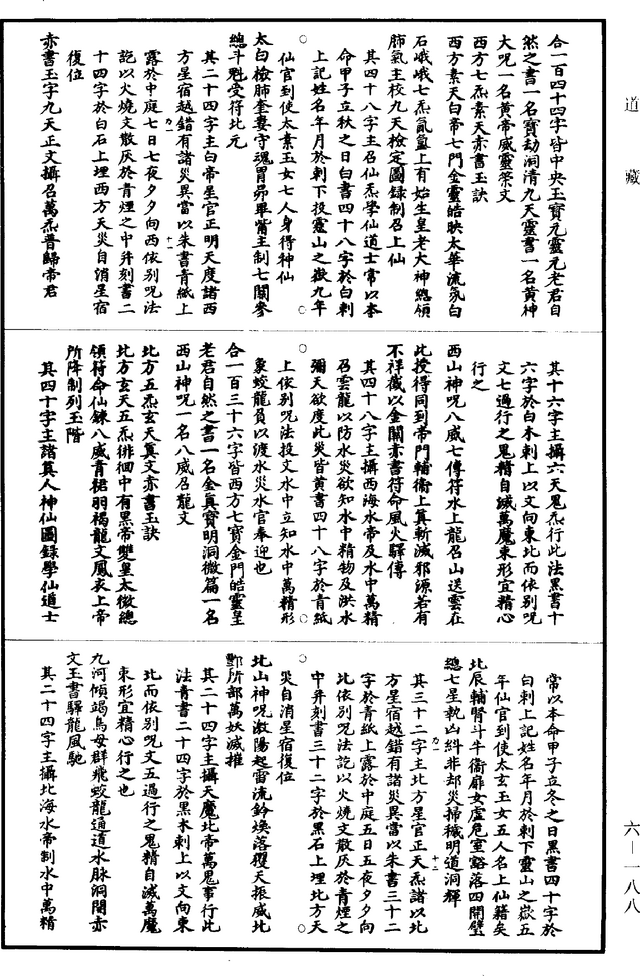 道藏
合一百四十四字皆中央玉寶元靈元老君自
然之書一名寶劫洞清九天靈書一名黃神
大呪一名黃帝威靈策文
西方七炁素天赤書玉訣
西方素天白帝七門金靈皓映太華流氛白
石峨峨七炁氤氳上有始生皇老大神總領
肺氣主校九天檢定圖錄制召上仙
其四十八字主召仙炁學仙道士常以本
命甲子立秋之日白書四十八字於白刺
上記姓名年月於刺下投靈山之嶽九年
仙官到使太素玉女七人身得神仙
太白檢肺奎婁守魂胃昴畢觜主制七關參
總斗魁受符北元
其二十四字主白帝星官正明天度諸西
方星宿越錯有諸災異當以朱書青紙上
露於中庭七日七夜夕夕向西依別呪法
訖以火燒文散灰於青煙之中并刻書二
十四字於白石上埋西方天災自消星宿
復位
赤書玉字九天正文攝召萬炁普歸帝君
其十六字主攝六天鬼炁行此法黑書十
六字於白木刺上以文向東北而依別呪
文七過行之鬼精自滅萬魔束形宜精心
行之
西山神呪八威七傳符水上龍召山送雲在
此授得同到帝門輔衛上真斬滅邪源若有
不祥截以金關赤書符命風火驛傳
其四十八字主攝西海水帝及水中萬精
召雲龍以防水災欲知水中精物及洪水
彌天欲度此災皆黃書四十八字於青紙
上依別呪法投文水中立知水中萬精形
象蛟龍負以渡水災水官奉迎也
合一百三十六字皆西方七寶金門皓靈皇
老君自然之書一名金真寶明洞微篇一名
西山神呪一名八威召龍文
北方五炁玄天真文赤書玉訣
北方玄天五炁徘徊中有黑帝雙皇太微總
領符命仙鍊八威青裙羽褐龍文鳳衣上帝
所降制列玉階
其四十字主諸真人神仙圖錄學仙道士
常以本命甲子立冬之日黑書四十字於
白刺上記姓名年月於刺下靈山之嶽五
年仙官到使太玄玉女五人名上仙籍矣
北辰輔腎斗牛衛扉女虛危室豁落四開壁
總七星執凶糾非却災掃穢明道洞輝
其三十二字主北方星官正天炁諸以北
方星宿越錯有諸災異當以朱書三十二
字於青紙上露於中庭五日五夜夕夕向
北依別呪法訖以火燒文散灰於青煙之
中并刻書三十二字於黑石上埋北方天
災自消星宿復位
北山神呪激陽起雷流鈴煥落矆天振威北
酆所部萬妖滅摧
其二十四字主攝天魔北帝萬鬼事行此
法青書二十四字於黑木刺上以文向東
北而依別呪文五過行之鬼精自滅萬魔
束形宜精心行之也
九河傾竭鳥母群飛蛟龍通道水脉洞開赤
文玉書驛龍風馳
其二十四字主攝北海水帝制水中萬精
六—一八八